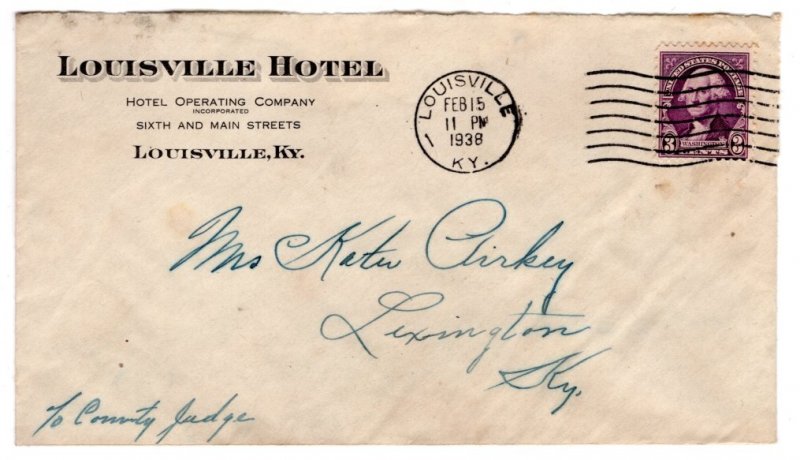 LOUISVILLE HOTEL
HOTEL OPERATING COMPANY
INCORPORATED
SIXTH AND MAIN STREETS
LOUISVILLE, KY.
LOUISVILLE
FEB 15
11 PM
1938
KY.
1
UNITED STATES POSTAGE
3 WASHINGTON 3
Mrs Katie Airkey
Lexington
Ky.
℅ County Judge